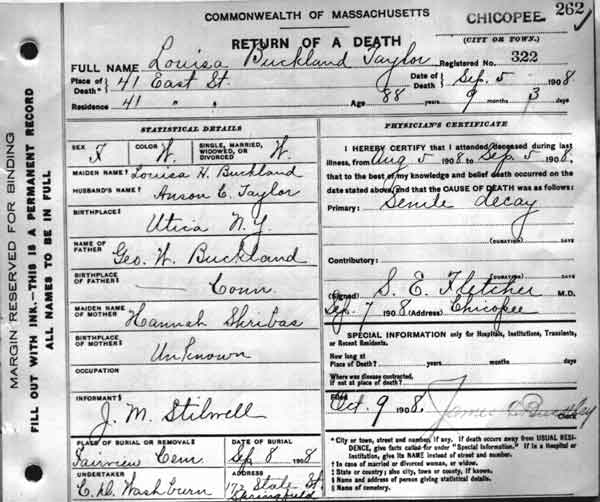 COMMONWEALTH OF MASSACHUSETTS
CHICOPEE 262
(CITY OR TOWN.)
RETURN OF A DEATH
FULL NAME Louisa Buckland Taylor Registered No. 322
Place of Death* 41 East St. Date of Death Sep. 5 1908
Residence 41 " " Age 88 years 9 months 3 days
MARGIN RESERVED FOR BINDING
FILL OUT WITH INK.—THIS IS A PERMANENT RECORD
ALL NAMES TO BE IN FULL
STATISTICAL DETAILS
SEX F COLOR W SINGLE, MARRIED, WIDOWED, OR DIVORCED W.
MAIDEN NAME† Louisa H. Buckland
HUSBAND'S NAME† Anson C. Taylor
BIRTHPLACE‡
Utica N.Y.
NAME OF FATHER
Geo. W. Buckland
BIRTHPLACE OF FATHER‡
Conn.
MAIDEN NAME OF MOTHER
Hannah Shribas
BIRTHPLACE OF MOTHER‡
Unknown
OCCUPATION
INFORMANT§
J. M. Stilwell
PLACE OF BURIAL OR REMOVAL¶ DATE OF BURIAL
Fairview Cem. Sep 8 1908
UNDERTAKER ADDRESS
Washburn 172 State St
Springfield
PHYSICIAN'S CERTIFICATE
I HEREBY CERTIFY that I attended deceased during last
illness, from Aug 5 1908 to Sep. 5 1908,
that to the best of my knowledge and belief death occurred on the
date stated above, and that the CAUSE OF DEATH was as follows:
Primary: Senile decay
(DURATION) DAYS
Contributory:
(DURATION) DAYS
(Signed) S. E. Fletcher M.D.
Sep. 7 1908 (Address) Chicopee
SPECIAL INFORMATION only for Hospitals, Institutions, Transients,
or Recent Residents.
How long at
Place of Death? years months days
Where was disease contracted,
if not at place of death?
FILED
Oct. 9 1908 James Clerk
* City or town, street and number, if any. If death occurs away from USUAL RESI-
DENCE, give facts called for under "Special Information." If in a Hospital or
Institution, give its NAME instead of street and number.
† In case of married or divorced woman, or widow.
‡ State or country; also city, town or county, if known.
§ Name and address of person giving statistical details.
¶ Name of cemetery.